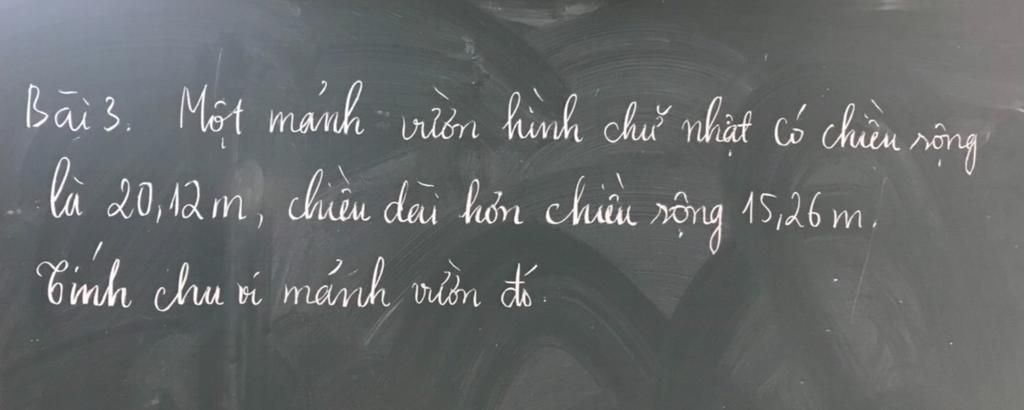 Bài 3. Một mảnh vườn hình chữ nhật có chiều rộng
là 20,12 m, chiều dài hơn chiều rộng 15,26 m.
Tính chu vi mảnh vườn đó.